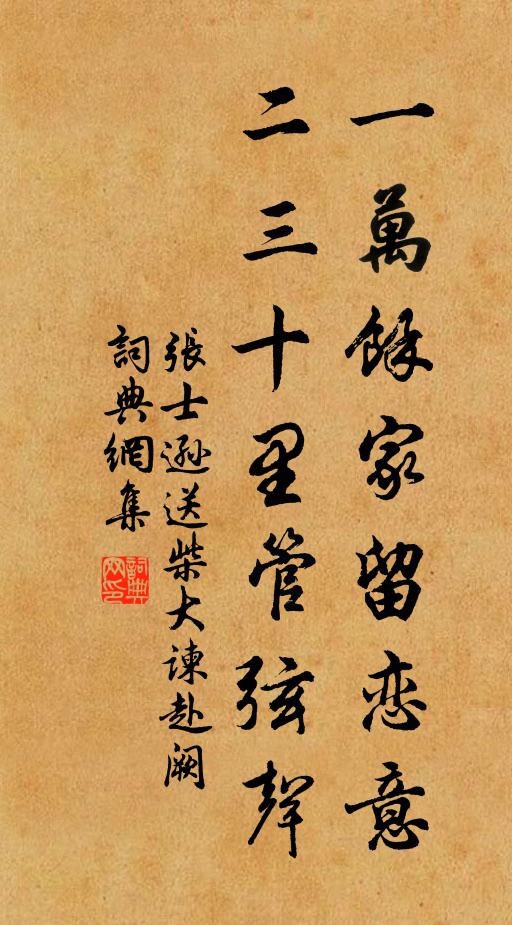 一萬餘家留恋意
二三十里管弦聲
張士遜送柴大諫赴阙
詞典網集
詞典网印